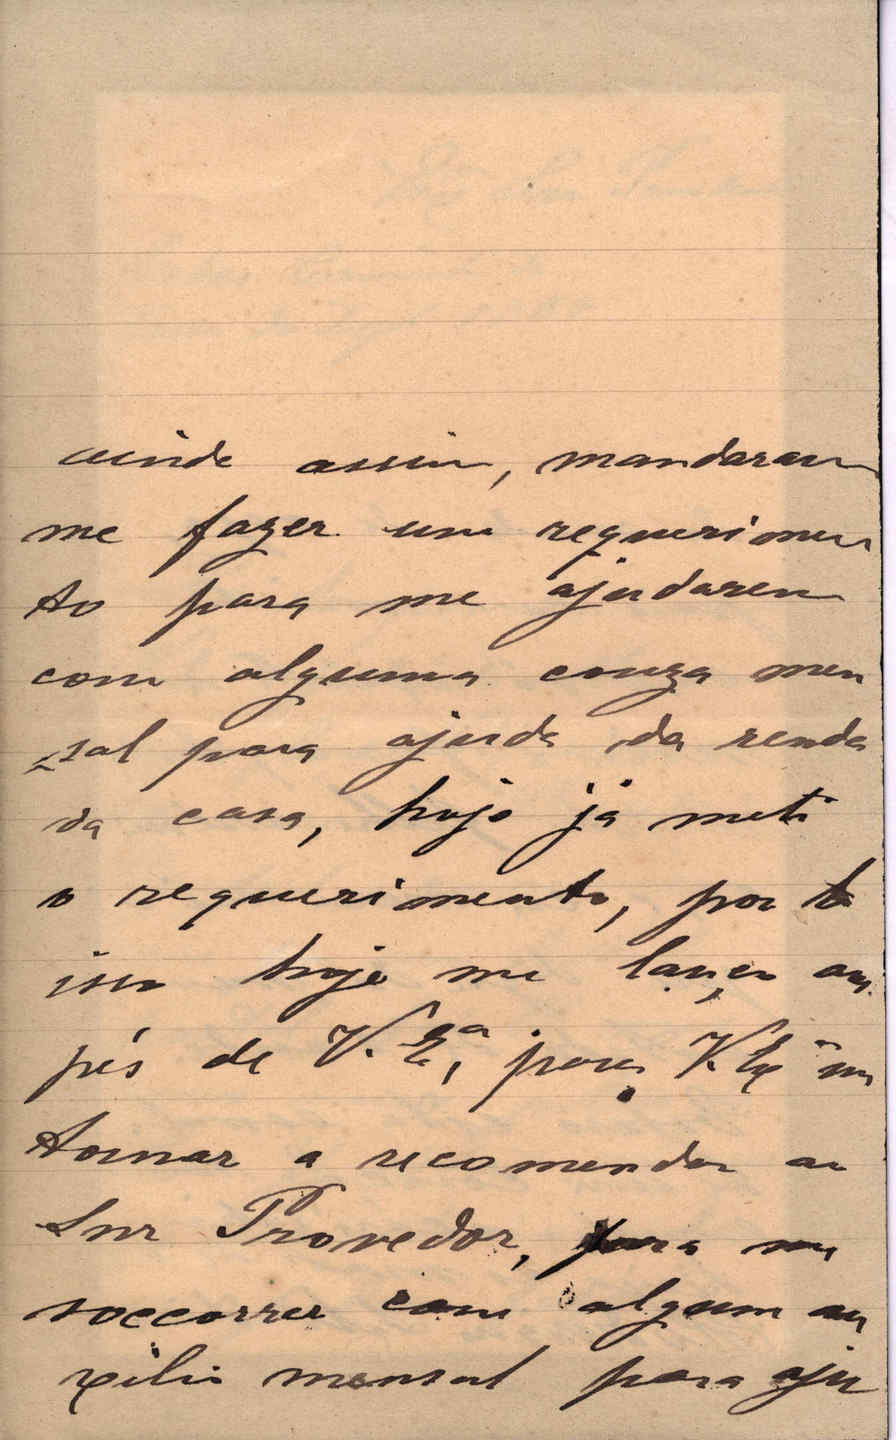 ainda assim, mandaram
me fazer um requerimen
to para me ajudarem
com alguma couza men
sal para ajuda da renda
da casa, hoje já meti
o requerimento, por
isso hoje me lanço aos
pés de V. Exª, para V. Exª me
tornar a recomendar ao
Snr Provedor, para me
soccorrer com algum au
xilio mensal para aju